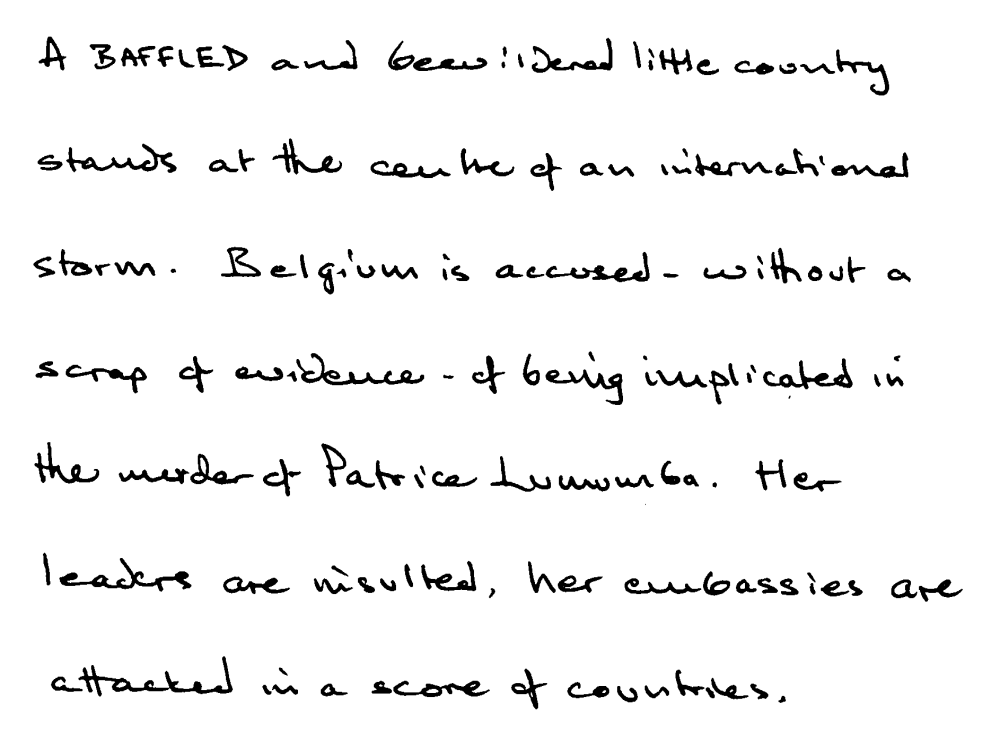 A BAFFLED and bewildered little country
stands at the centre of an international
storm. Belgium is accused - without a
scrap of evidence - of being implicated in
the murder of Patrice Lumumba. Her
leaders are insulted, her embassies are
attacked in a score of countries.